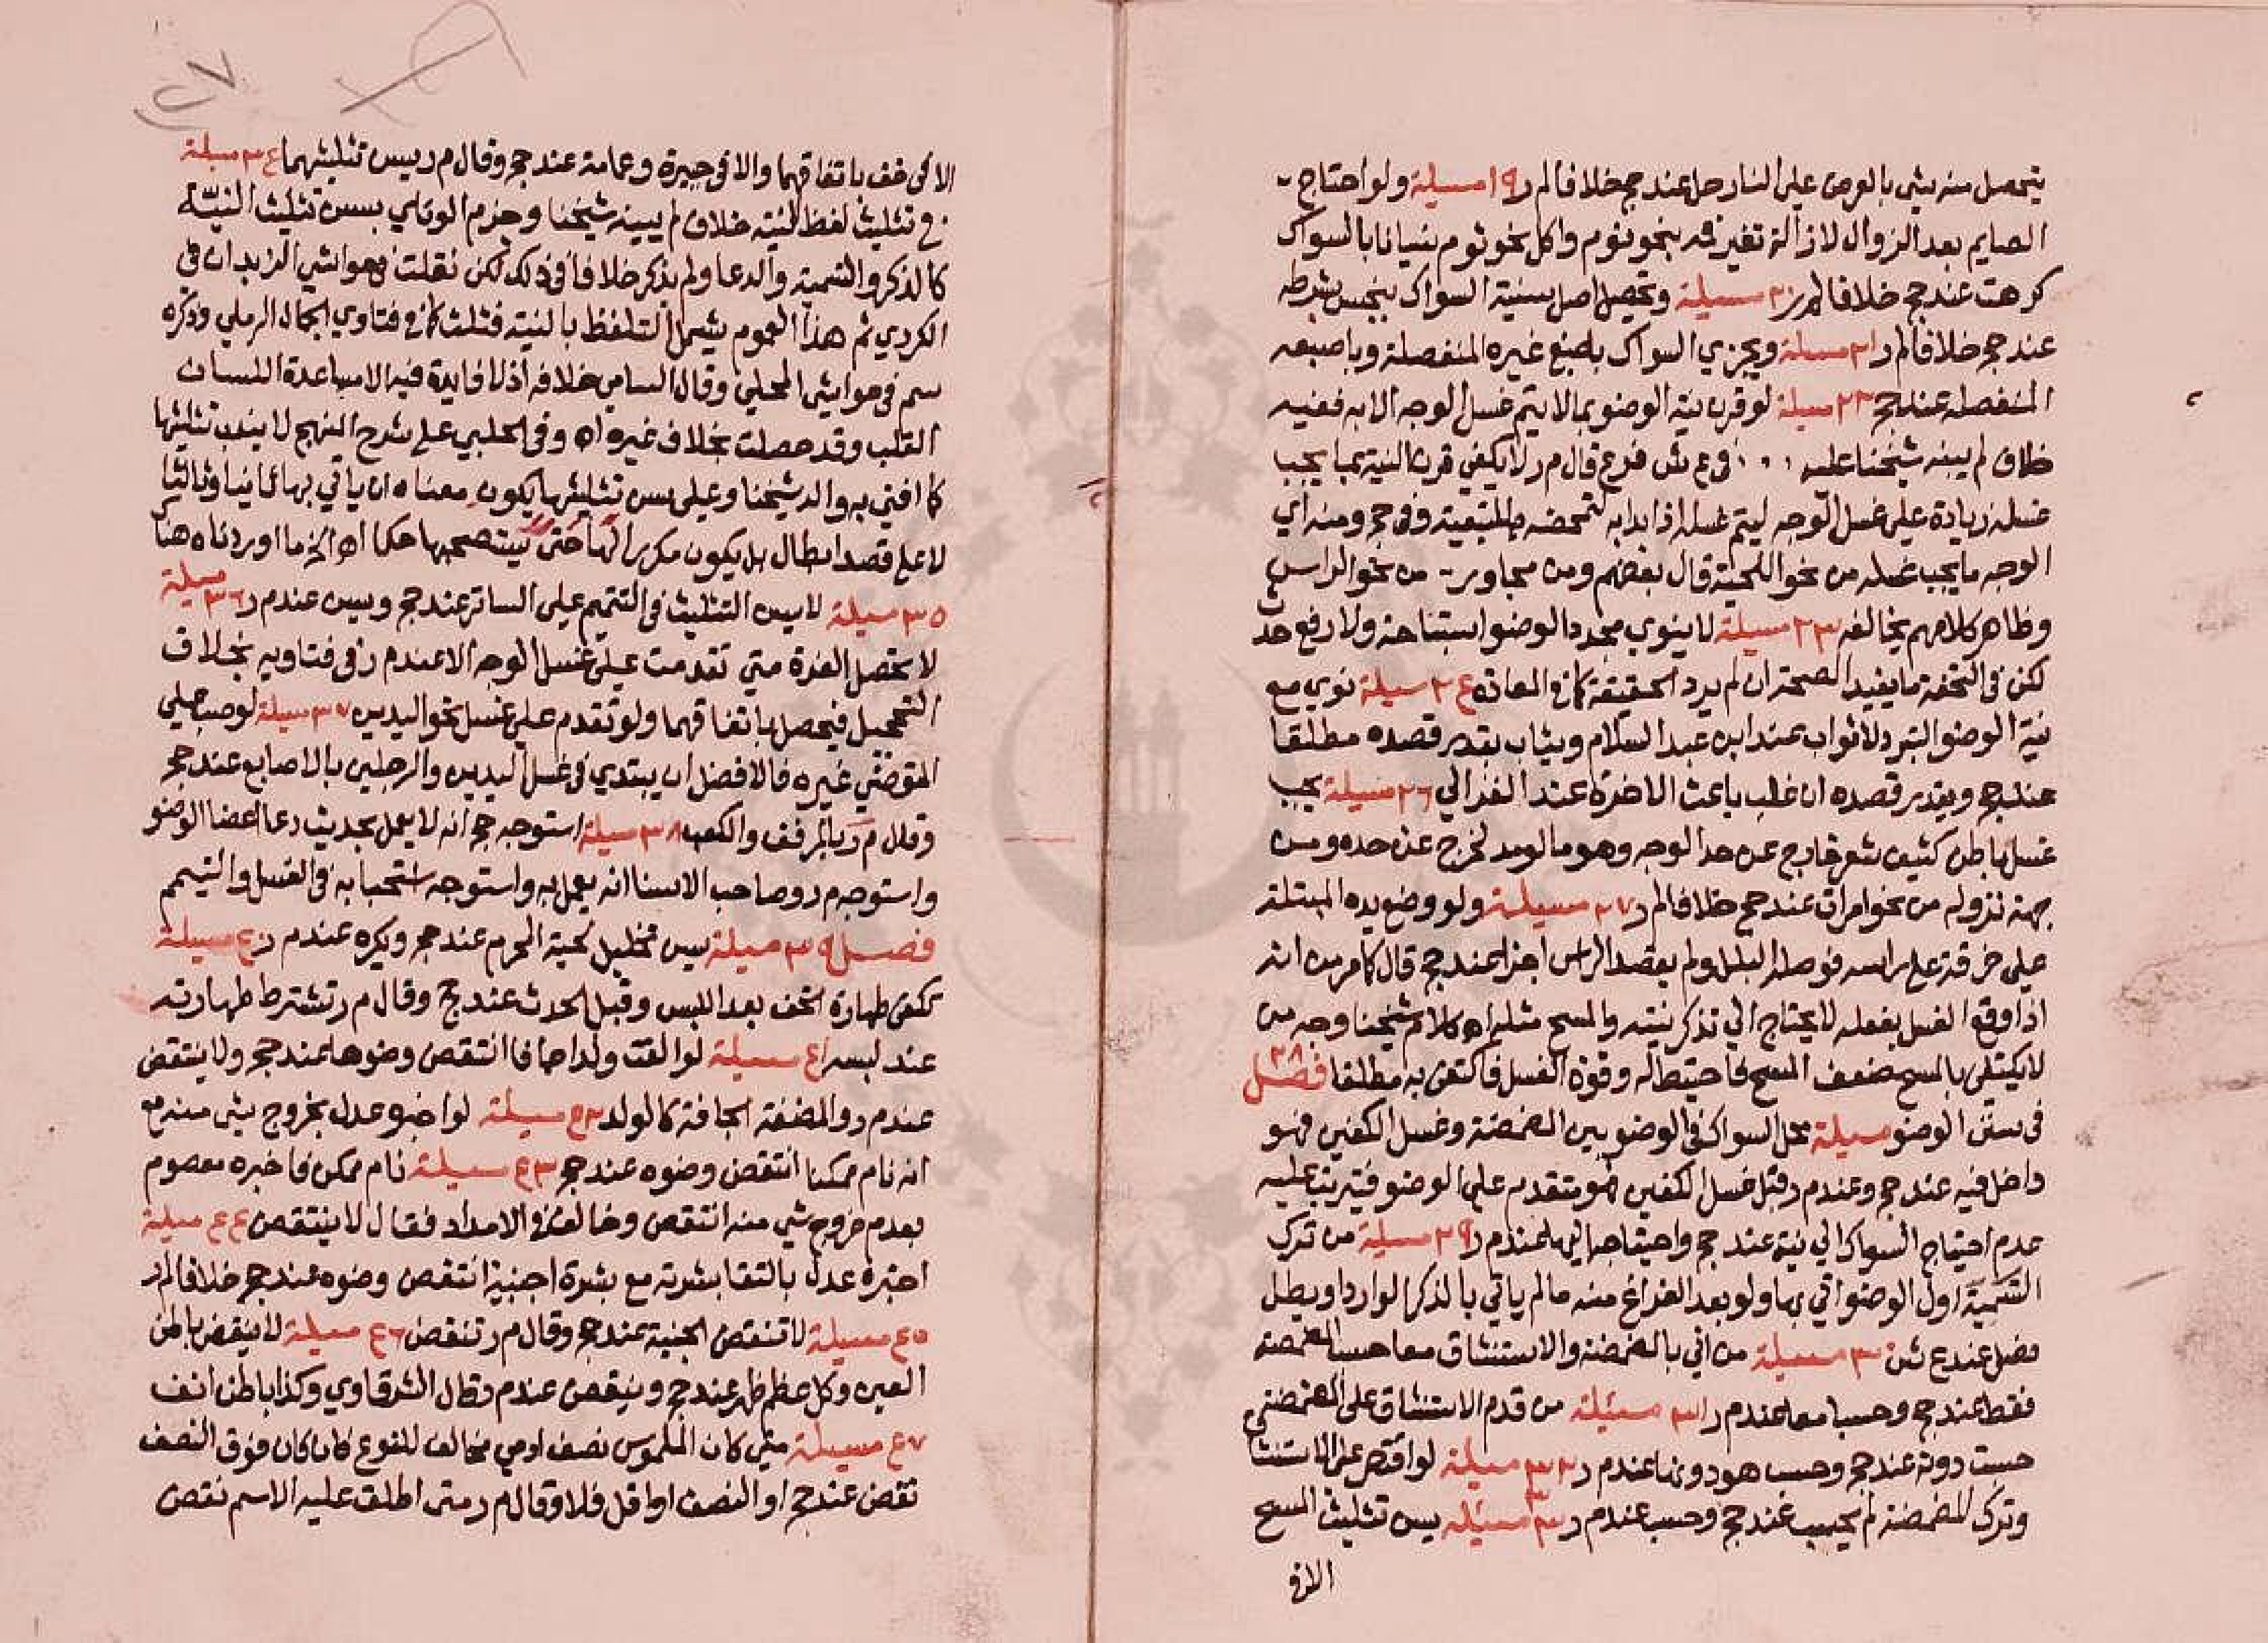 يتحصل منه شي بالعرض على النار حل عند حج خلافا لم ر ١٩ مسيلة ولو احتاج
الصايم بعد الزوال لازالة تغير فمه بنحو نوم واكل نحو ثوم نسيانا بالسواك
كرهت عند حج خلافا لم ر ٢٠ مسيلة وتحصل اصل سنية السواك بنجس بشرطه
عند حج خلافا لم ر ٢١ مسيلة ويجزي السواك باصبع غيره المنفصلة وباصبعه
المنفصله عند حج ٢٢ مسيلة لو قرن نية الوضو بما لا يتم غسل الوجه الا به ففيه
خلاف لم يبينه شيخنا عليه وفي ع ش فرع قال م ر لا يكفي قرن النية بما يجب
غسله زيادة على غسل الوجه ليتم غسله اذا بدا به لتمحضه للتبعية وفي حج ومنه اي
الوجه ما يجب غسله من نحو اللحية قال بعضهم ومن مجاوره من نحو الراس
وظاهر كلامهم يخالفه ٢٣ مسيلة لا ينوي مجدد الوضو استباحة ولا رفع حدث
لكن في التحفة ما يفيد الصحة ان لم يرد الحقيقة كما في المعادة ٢٤ مسيلة نوي مع
نية الوضو التبرد لا ثواب عند ابن عبد السلام ويثاب بقدر قصده مطلقا
عند حج وبقدر قصده ان غلب باعث الاخرة عند الغزالي ٢٦ مسيلة يجب
غسل باطن كثيف شعر خارج عن حد الوجه وهو ما لو مد لخرج عن حده ومن
جهة نزوله من نحو امراة عند حج خلافا لم ر ٢٧ مسيلة ولو وضع يده المبتلة
على خرقة على راسه فوصله البلل ولم يقصد الراس اجزا عند حج قال كما مر من انه
اذا وقع الغسل بفعله لا يحتاج الي تذكر نيته والمسح مثله اه كلام شيخنا وجه من
لا يكتفي بالمسح ضعف المسح فاحتيط له وقوة الغسل فاكتفى به مطلقا ٢٨ فصل
في سنن الوضو مسيلة محل السواك في الوضو بين المضمضة وغسل الكفين فهو
داخل فيه عند حج وعند م ر قبل غسل الكفين فهو متقدم على الوضو فيترتب عليه
عدم احتياج السواك الي نية عند حج واحتياجه اليها عند م ر ٢٩ مسيلة من ترك
التسمية اول الوضو اتي بها ولو بعد الفراغ منه ما لم ياتي بالذكر الوارد او يطل
فصل عند ع ش ٣٠ مسيلة من اتي بالمضمضة والاستنشاق معا حسب المضمضة
فقط عند حج وحسبا معا عند م ر ٣١ مسئلة من قدم الاستنشاق على المضمضة
حسبت دونه عند حج وحسب هو دونها عند م ر ٣٢ مسيلة لو اقتصر على الاستنشاق
وترك المضمضة لم يحسب عند حج وحسب عند م ر ٣٣ مسئله يسن تثليث المسح
الا في
٢٧
الا في خف باتفاقهما والا في جبيرة وعمامة عند حج وقال م ر يسن تثليثهما ٣٤ مسيلة
في تثليث لفظ النية خلاف لم يبينه شيخنا وجزم الوناي بسن تثليث النية
كالذكر والتسمية والدعا ولم يذكر خلافا في ذلك لكن نقلت في حواشي الزبد ان في
الكردي ثم هذا العموم يشمل التلفظ بالنية فتثلث كما في فتاوي الجمال الرملي وذكره
سم في حواشي المحلي وقال السامي خلافه اذ لا فايدة فيه الا مساعدة اللسان
القلب وقد حصلت بخلاف غيره اه وفي الحلبي على شرح المنهج لا يندب تثليثها
كما افتي به والد شيخنا وعلى سن تثليثها يكون معناه ان ياتي بها ثانيا وثالثا
لا على قصد ابطال بل يكون مكررا لها حتى يستصحبها حكما اه الي اخر ما اوردناه هنا
٣٥ مسيلة لا يسن التثليث في التتميم على الساتر عند حج ويسن عند م ر ٣٦ مسيلة
لا تحصل الغرة متي تقدمت على غسل الوجه الا عند م ر في فتاويه بخلاف
التحجيل فيحصل باتفاقهما ولو تقدم على غسل نحو اليدين ٣٧ مسيلة لو صب علي
المتوضي غيره فالافضل ان يبتدي في غسل اليدين والرجلين بالاصابع عند حج
وقال م ر بالمرفق والكعب ٣٨ مسيلة استوجه حج انه لا يعمل بحديث دعا اعضا الوضو
واستوجه م ر وصاحب الاسنا انه يعمل به واستوجه استحبابه في الغسل والتيمم
فصل ٣٩ مسيلة يسن تخليل لحية المحرم عند حج ويكره عند م ر ٤٠ مسيلة
تكفي طهارة الخف بعد اللبس وقبل الحدث عند حج وقال م ر تشترط طهارته
عند لبسه ٤١ مسيلة لو القت ولدا جافا انتقض وضوها عند حج ولا ينتقض
عند م ر والمضغة الجافة كالولد ٤٢ مسيلة لو اخبره عدل بخروج شي منه مع
انه نام ممكنا انتقض وضوه عند حج ٤٣ مسيلة نام ممكن فاخبره معصوم
بعدم خروج شي منه انتقض وخالف في الامداد فقال لا ينتقض ٤٤ مسيلة
اخبره عدل بالتقا بشرته مع بشرة اجنبية انتقض وضوه عند حج خلافا لم ر
٤٥ مسيلة لا تنقض الجنية عند حج وقال م ر تنقض ٤٦ مسيلة لا ينقض باطن
العين وكل عظم ظهر عند حج وينقض عند م ر قال الشرقاوي وكذا باطن انف
٤٧ مسيلة متي كان الملموس نصف ادمي مخالف للنوع فان كان فوق النصف
نقض عند حج او النصف او اقل فلا وقال م ر متى اطلق عليه الاسم نقض